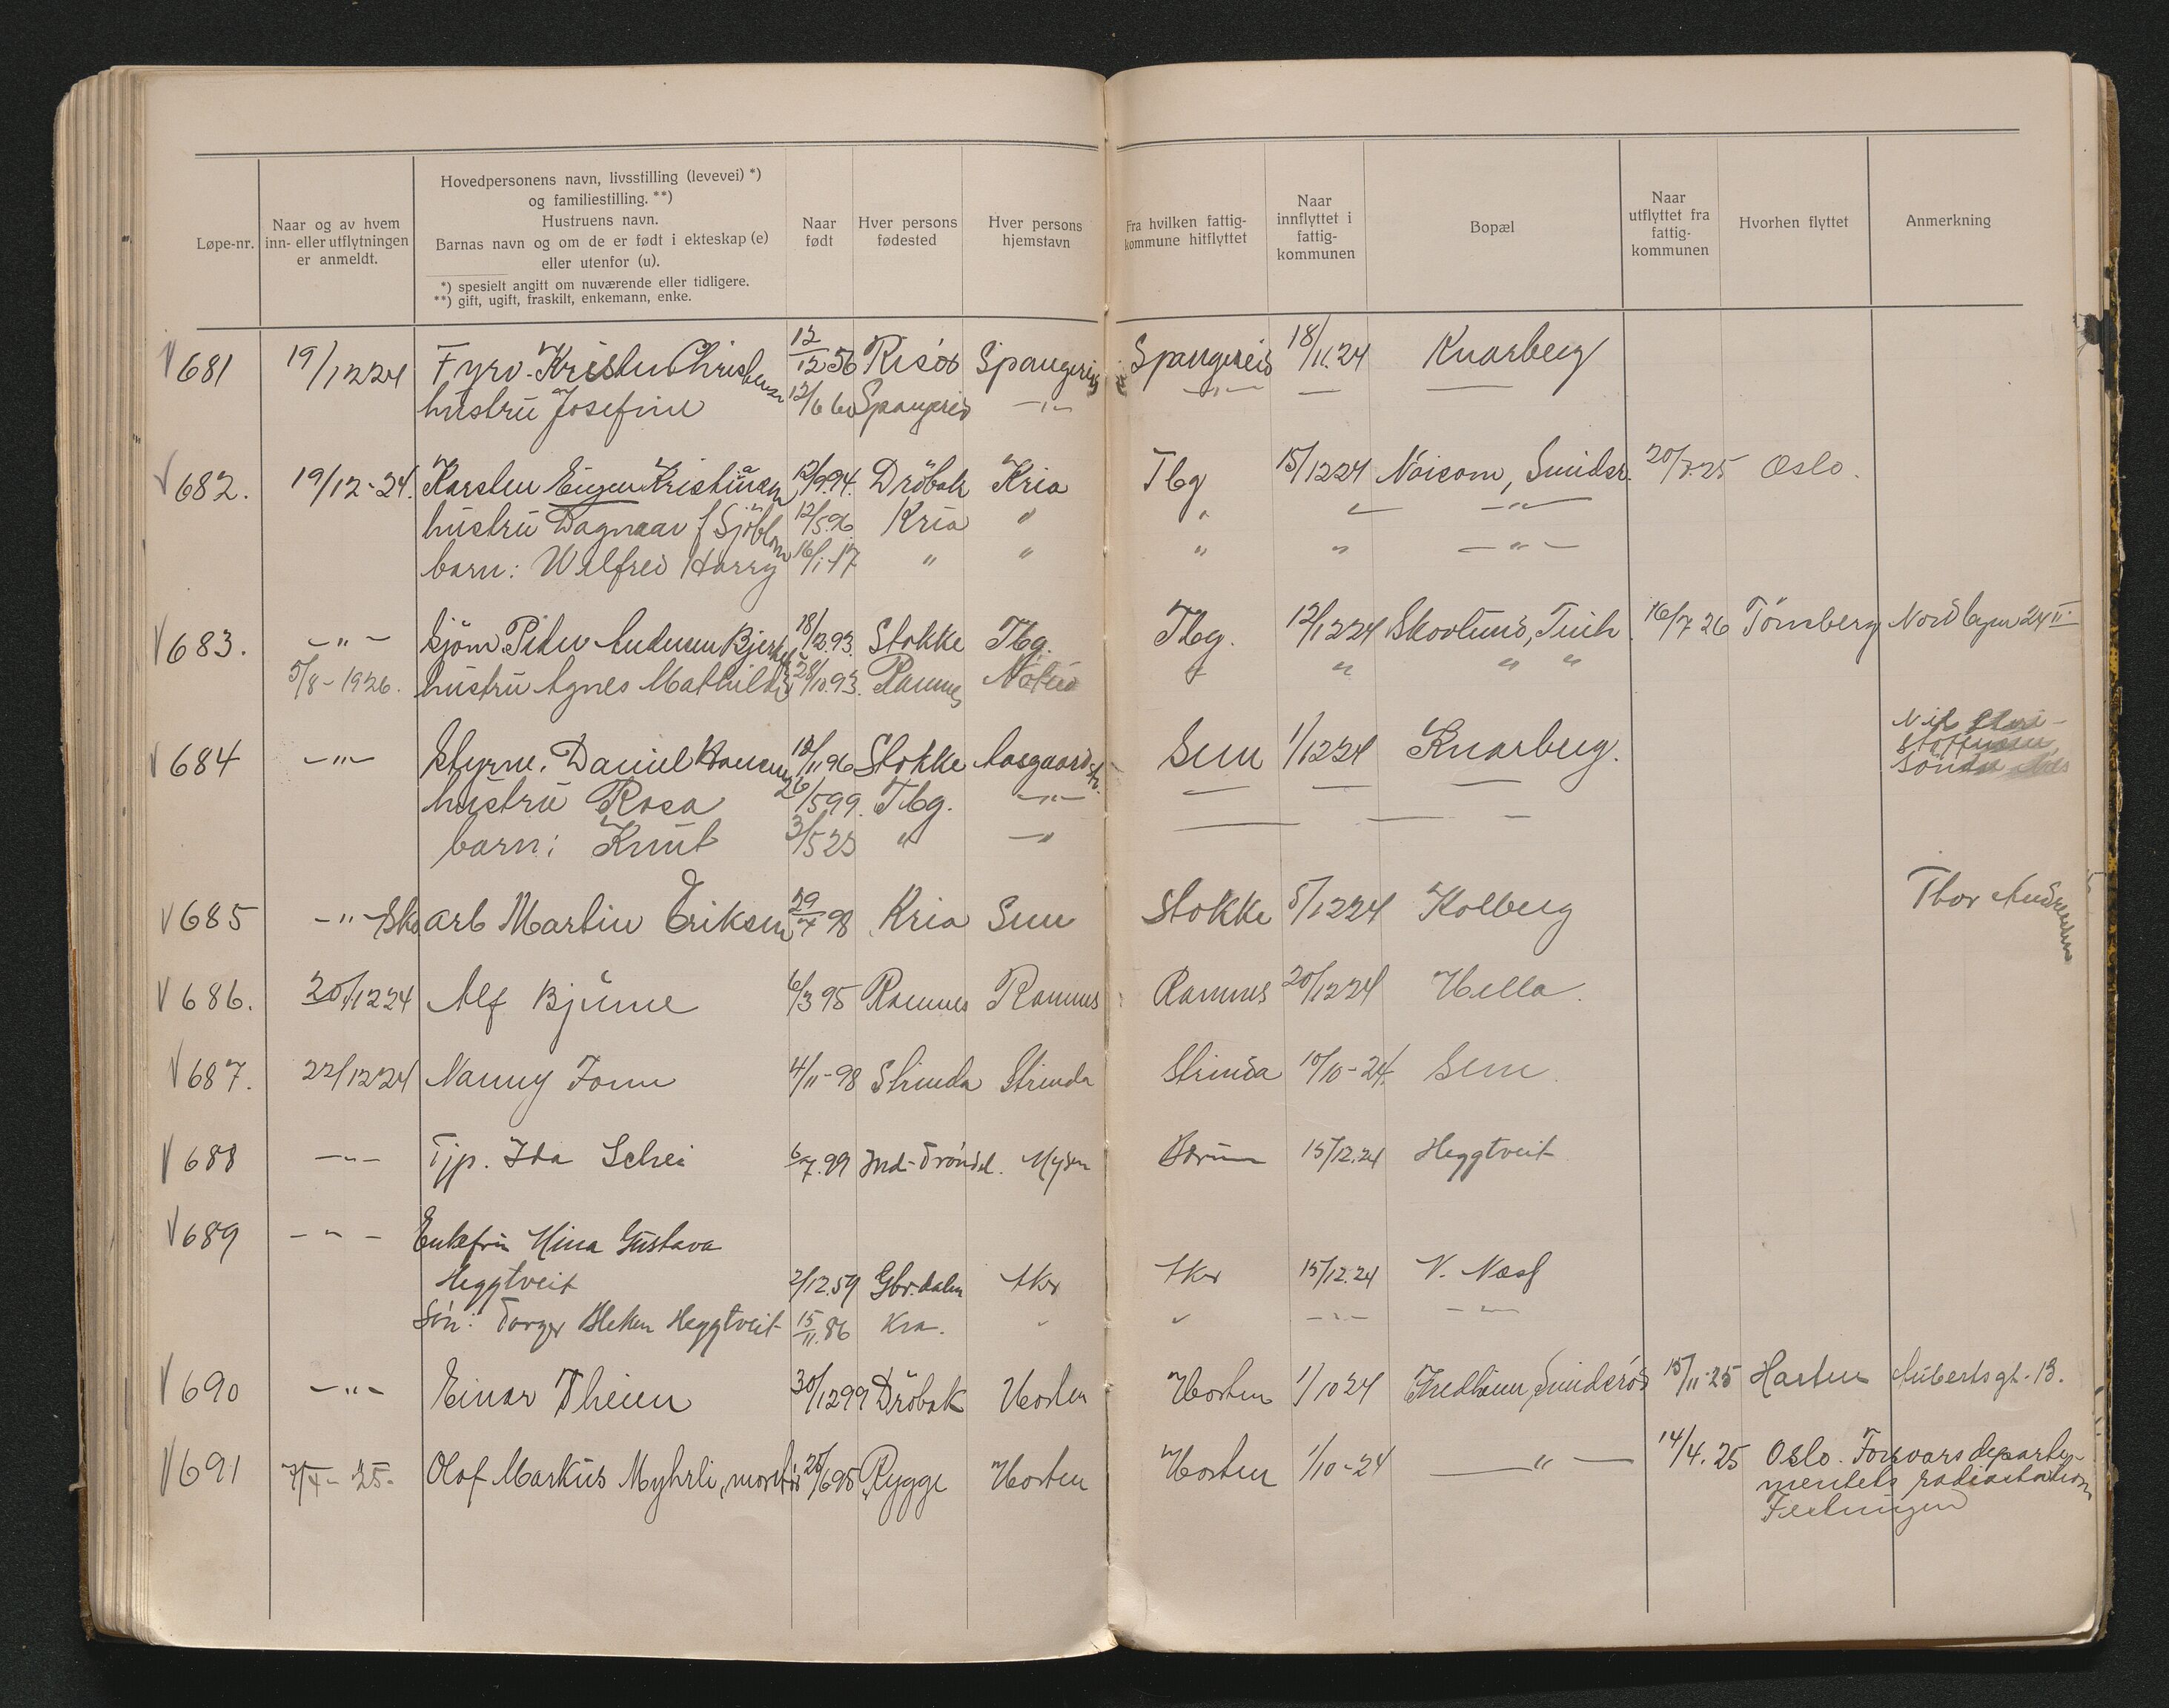 Løpe-nr.
Naar og av hvem
inn- eller utflytningen
er anmeldt.
Hovedpersonens navn, livsstilling (levevei) *)
og familiestilling. **)
Hustruens navn.
Barnas navn og om de er født i ekteskap (e)
eller utenfor (u).
*) spesielt angitt om nuværende eller tidligere.
**) gift, ugift, fraskilt, enkemann, enke.
Naar
født
Hver persons
fødested
Hver persons
hjemstavn
Fra hvilken fattig-
kommune hitflyttet
Naar
innflyttet i
fattig-
kommunen
Bopæl
Naar
utflyttet fra
fattig-
kommunen
Hvorhen flyttet
Anmerkning
681 19/12 24 Fyrv. Christensen 12/12 56 Risör Spangereid Spangereid 18/11.24 Knarberg
hustru Josefine 12/6 60 Spangereid -"- -"- —
682. 19/12-24. Karsten Eugen Kristiansen 12/9.94. Dröbak Kria Tbg 15/12 24 Smidsr. 20/3.25 Oslo.
hustru Dagmar f Sjöblom 12/5.96 Kria " " " -"-
barn: Wilfred Harry 16/1-17 " " " " -"-
683. -"- Sjöm Peder Andersen 18/12.93. Stokke Tbg. Tbg. 12/12 24 Skovlund, 16/7 26 Tönsberg Nordbyen 24 II
5/8-1926. hustru Agnes Mathilde 28/10.93. Ramnes " " " "
684 -"- Styrm. Daniel Hansen 12/11 96 Stokke Aasgaardstr. Sem 1/12 24 Knarberg.
hustru Rosa 26/5 99 Tbg. -"- — — —
barn: Knut 3/5 23 " -" — — —
685 -"- Sko arb Martin Eriksen 29/7 98 Kria Sem Stokke 5/12 24 Kolberg Thor Andersen
686. 20/12 24 Alf Bjune 6/3 95 Ramnes Ramnes Ramnes 20/12 24 Hella.
687. 22/12 24 Nanny 4/11-98 Strinda Strinda Strinda 10/10-24. Sem.
688 -"- Tjp. Ida Schei 6/7.99 Ind-Tröndel. Mysen Bærum 15/12.24 Heggtveit
689 -"- Enkefru Mina Gustava
Heggtveit 2/12.59 Gbr.dalen Aker Aker 15/12.24 V. Næss
Sön: Torger Bleken Heggtveit 15/11.86 Kra. " " -"- -"-
690 -"- Einar Theien 30/12 99 Dröbak Horten Horten 1/10 24 Smidsröd 15/11-25 Horten Aubertsgt. 13.
691 7/4-25. Olaf Markus Myhrli, 25/6 95 Rygge Horten Horten 1/10-24 —"— 14/4.25 Oslo. Forsvarsdeparte-
mentets radiostation
Festningen